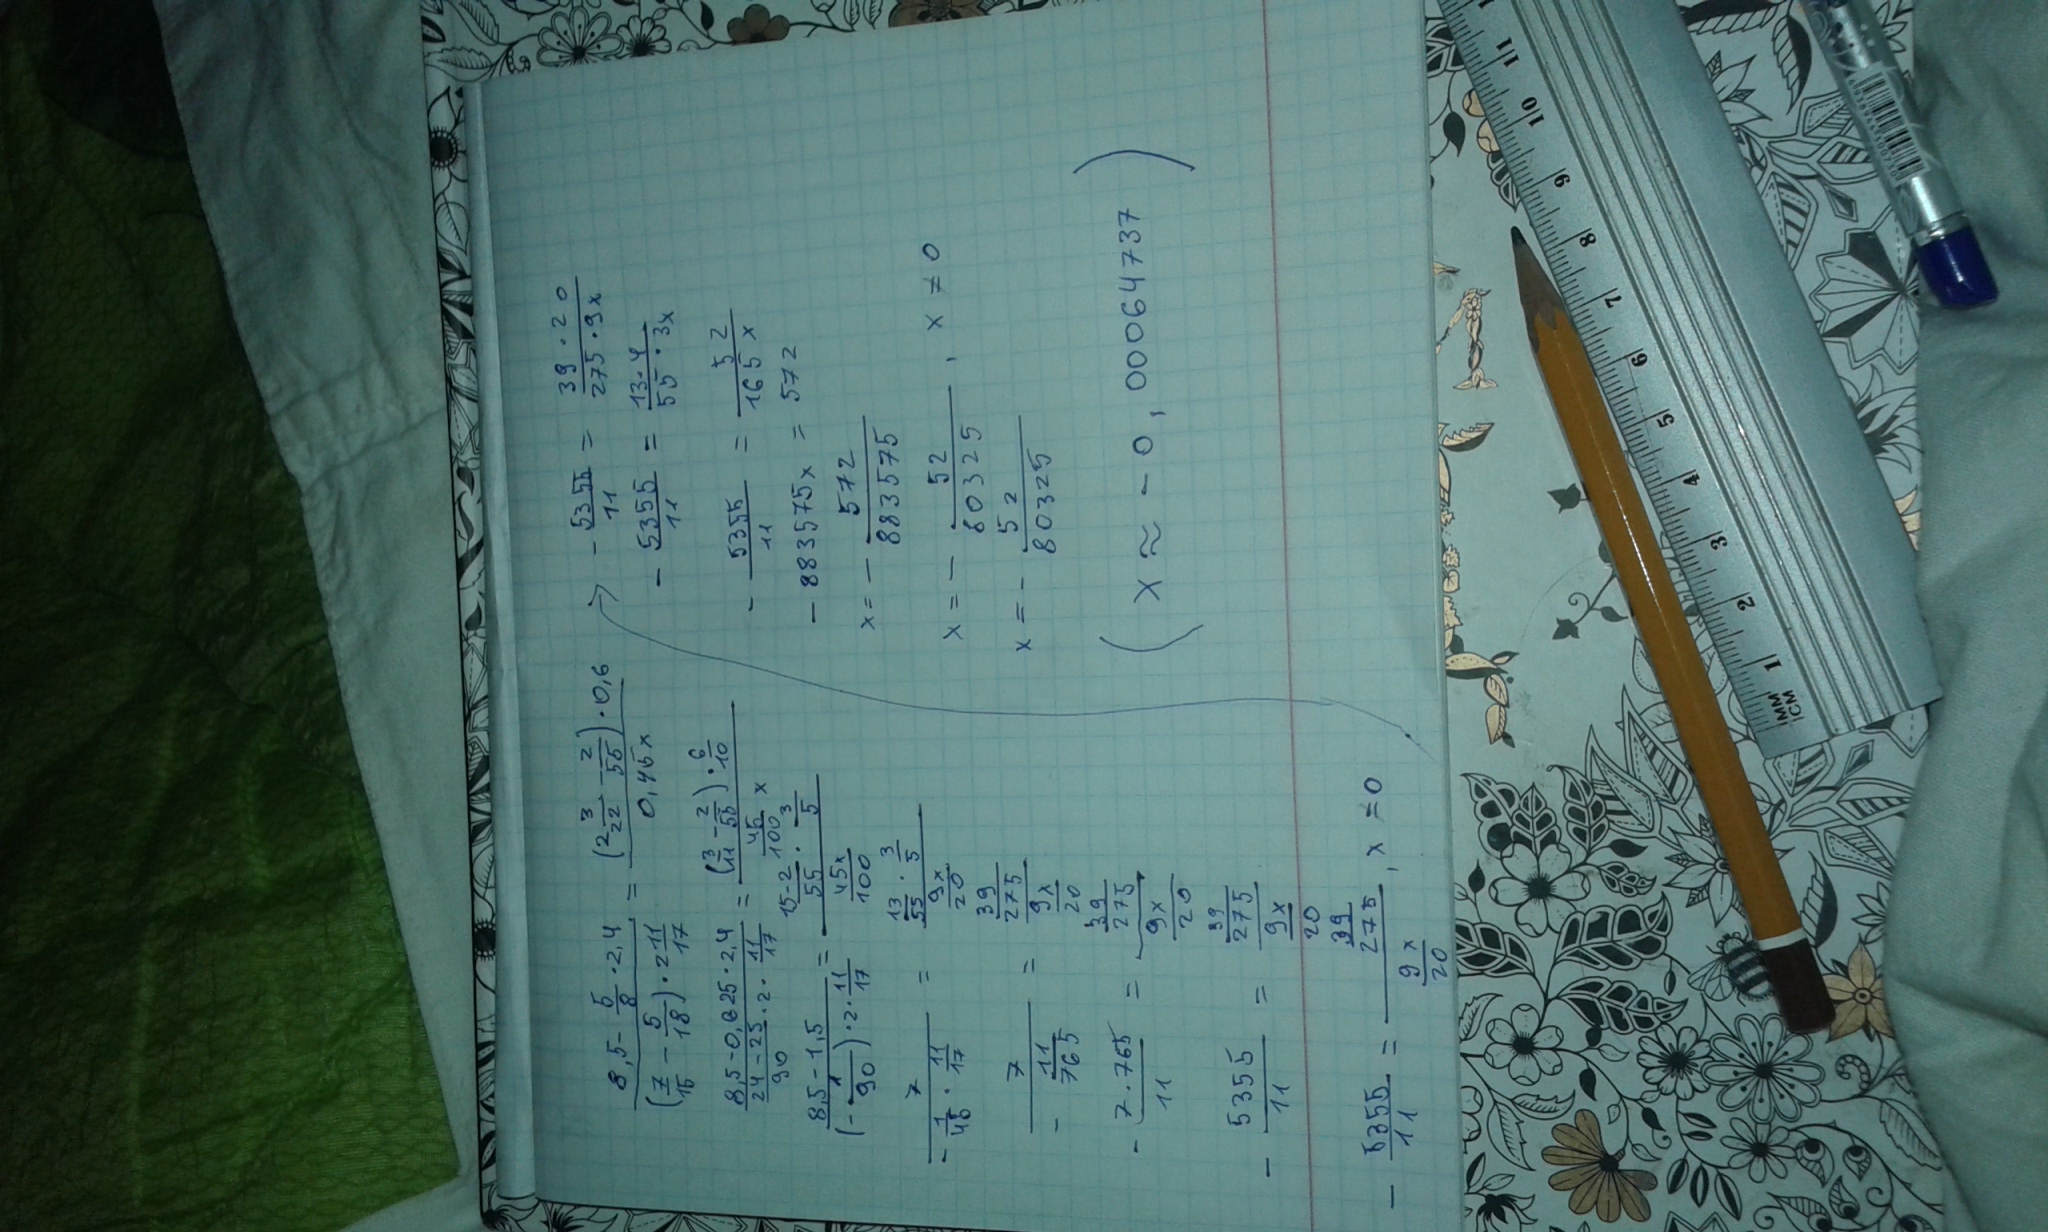 (8,5 - 5/8 · 2,4) / ((7/15 - 5/18) · 2 11/17) = ((2 3/22 - 2/55) · 0,6) / (0,45x)
(8,5 - 0,625 · 2,4) / ((24 - 25)/90 · 2 · 11/17) = ((3/11 - 2/55) · 6/10) / (45/100 x)
(8,5 - 1,5) / ((-1/90) · 2 · 11/17) = ((15-2)/55 · 3/5) / (45x/100)
7 / (-1/45 · 11/17) = (13/55 · 3/5) / (9x/20)
7 / (-11/765) = (39/275) / (9x/20)
- 7 · 765 / 11 = (39/275) / (9x/20)
- 5355/11 = (39/275) / (9x/20)
- 5355/11 = (39/275) / (9x/20) , x ≠ 0
- 5355/11 = (39 · 20) / (275 · 9x)
- 5355/11 = (13 · 4) / (55 · 3x)
- 5355/11 = 52 / (165x)
- 883575x = 572
x = - 572/883575
x = - 52/80325 , x ≠ 0
x = - 52/80325
(x ≈ - 0,00064737)
1MM
1CM
1 2 3 4 5 6 7 8 9 10 11